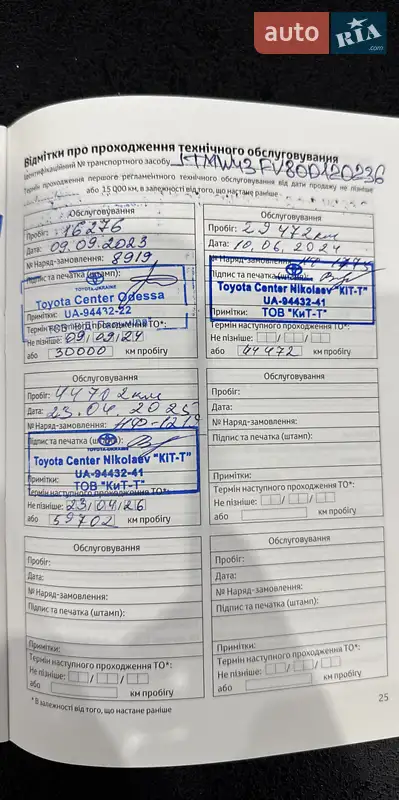 auto RIA.com
Відмітки про проходження технічного обслуговування
Ідентифікаційний № транспортного засобу JTMW43FV80D120236
Термін проходження першого регламентного технічного обслуговування від дати продажу не пізніше
або 15 000 км, в залежності від того, що настане раніше
Обслуговування
Пробіг: 16276
Дата: 09.09.2023
№ Наряд-замовлення: 8919
Підпис та печатка (штамп):
TOYOTA-UKRAINE
Toyota Center Odessa
Примітки: UA-94432-22
Термін наступного проходження ТО*:
Не пізніше: 09/09/24
або 30000 км пробігу
Обслуговування
Пробіг: 29472 км
Дата: 10.06.2024
№ Наряд-замовлення:
Підпис та печатка (штамп):
Toyota Center Nikolaev "KIT-T"
UA-94432-41
Примітки: ТОВ "КиТ-Т"
Термін наступного проходження ТО*:
Не пізніше:
або 44472 км пробігу
Обслуговування
Пробіг: 44702 км
Дата: 23.04.2025
№ Наряд-замовлення:
Підпис та печатка (штамп):
TOYOTA-UKRAINE
Toyota Center Nikolaev "KIT-T"
UA-94432-41
Примітки: ТОВ "КиТ-Т"
Термін наступного проходження ТО*:
Не пізніше: 23/04/26
або 59702 км пробігу
Обслуговування
Пробіг:
Дата:
№ Наряд-замовлення:
Підпис та печатка (штамп):
Примітки:
Термін наступного проходження ТО*:
Не пізніше:
або км пробігу
Обслуговування
Пробіг:
Дата:
№ Наряд-замовлення:
Підпис та печатка (штамп):
Примітки:
Термін наступного проходження ТО*:
Не пізніше:
або км пробігу
Обслуговування
Пробіг:
Дата:
№ Наряд-замовлення:
Підпис та печатка (штамп):
Примітки:
Термін наступного проходження ТО*:
Не пізніше:
або км пробігу
* В залежності від того, що настане раніше
25